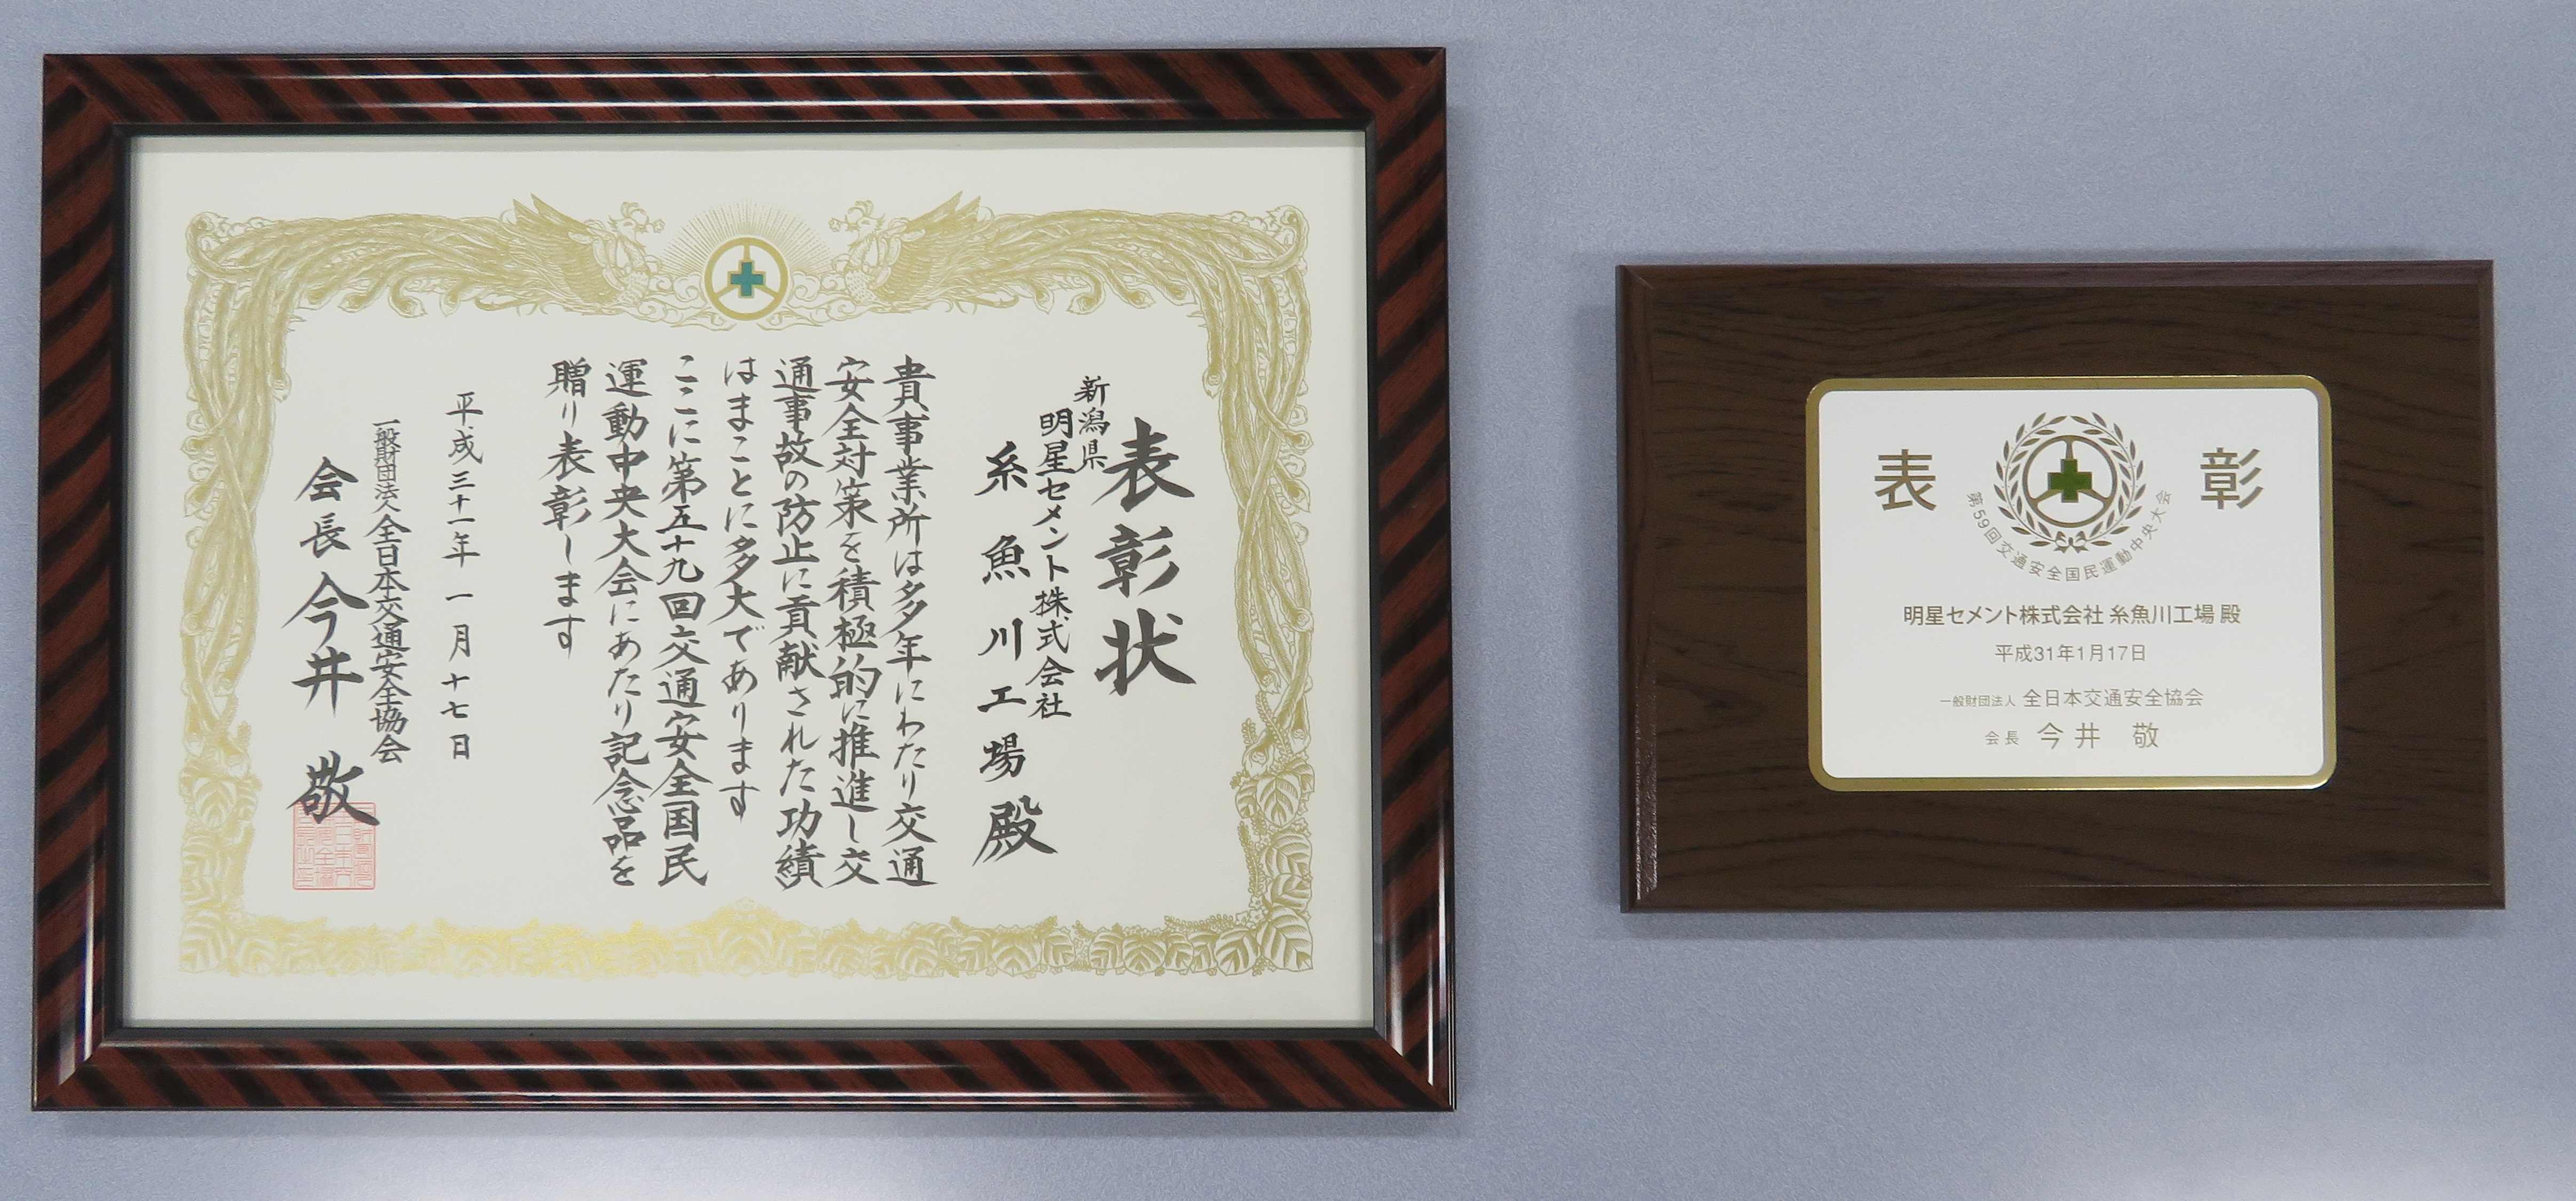 表彰状
新潟県
明星セメント株式会社
糸魚川工場殿
貴事業所は多年にわたり交通
安全対策を積極的に推進し交
通事故の防止に貢献された功績
はまことに多大であります
ここに第五十九回交通安全国民
運動中央大会にあたり記念品を
贈り表彰します
平成三十一年一月十七日
一般財団法人全日本交通安全協会
会長今井敬
表彰
第59回交通安全国民運動中央大会
明星セメント株式会社 糸魚川工場 殿
平成31年1月17日
一般財団法人 全日本交通安全協会
会長 今井 敬